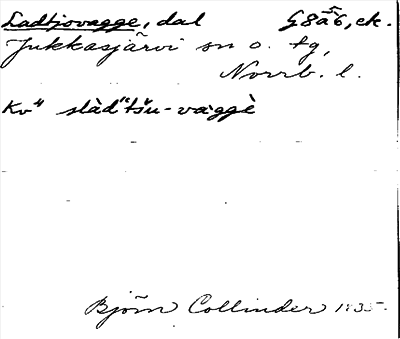 Ladtjovagge, dal G8a6, ek.
Jukkasjärvi sn o. tg,
Norrb. l.
Kv" slàd'tšu-vaggè
Björn Collinder 1935.